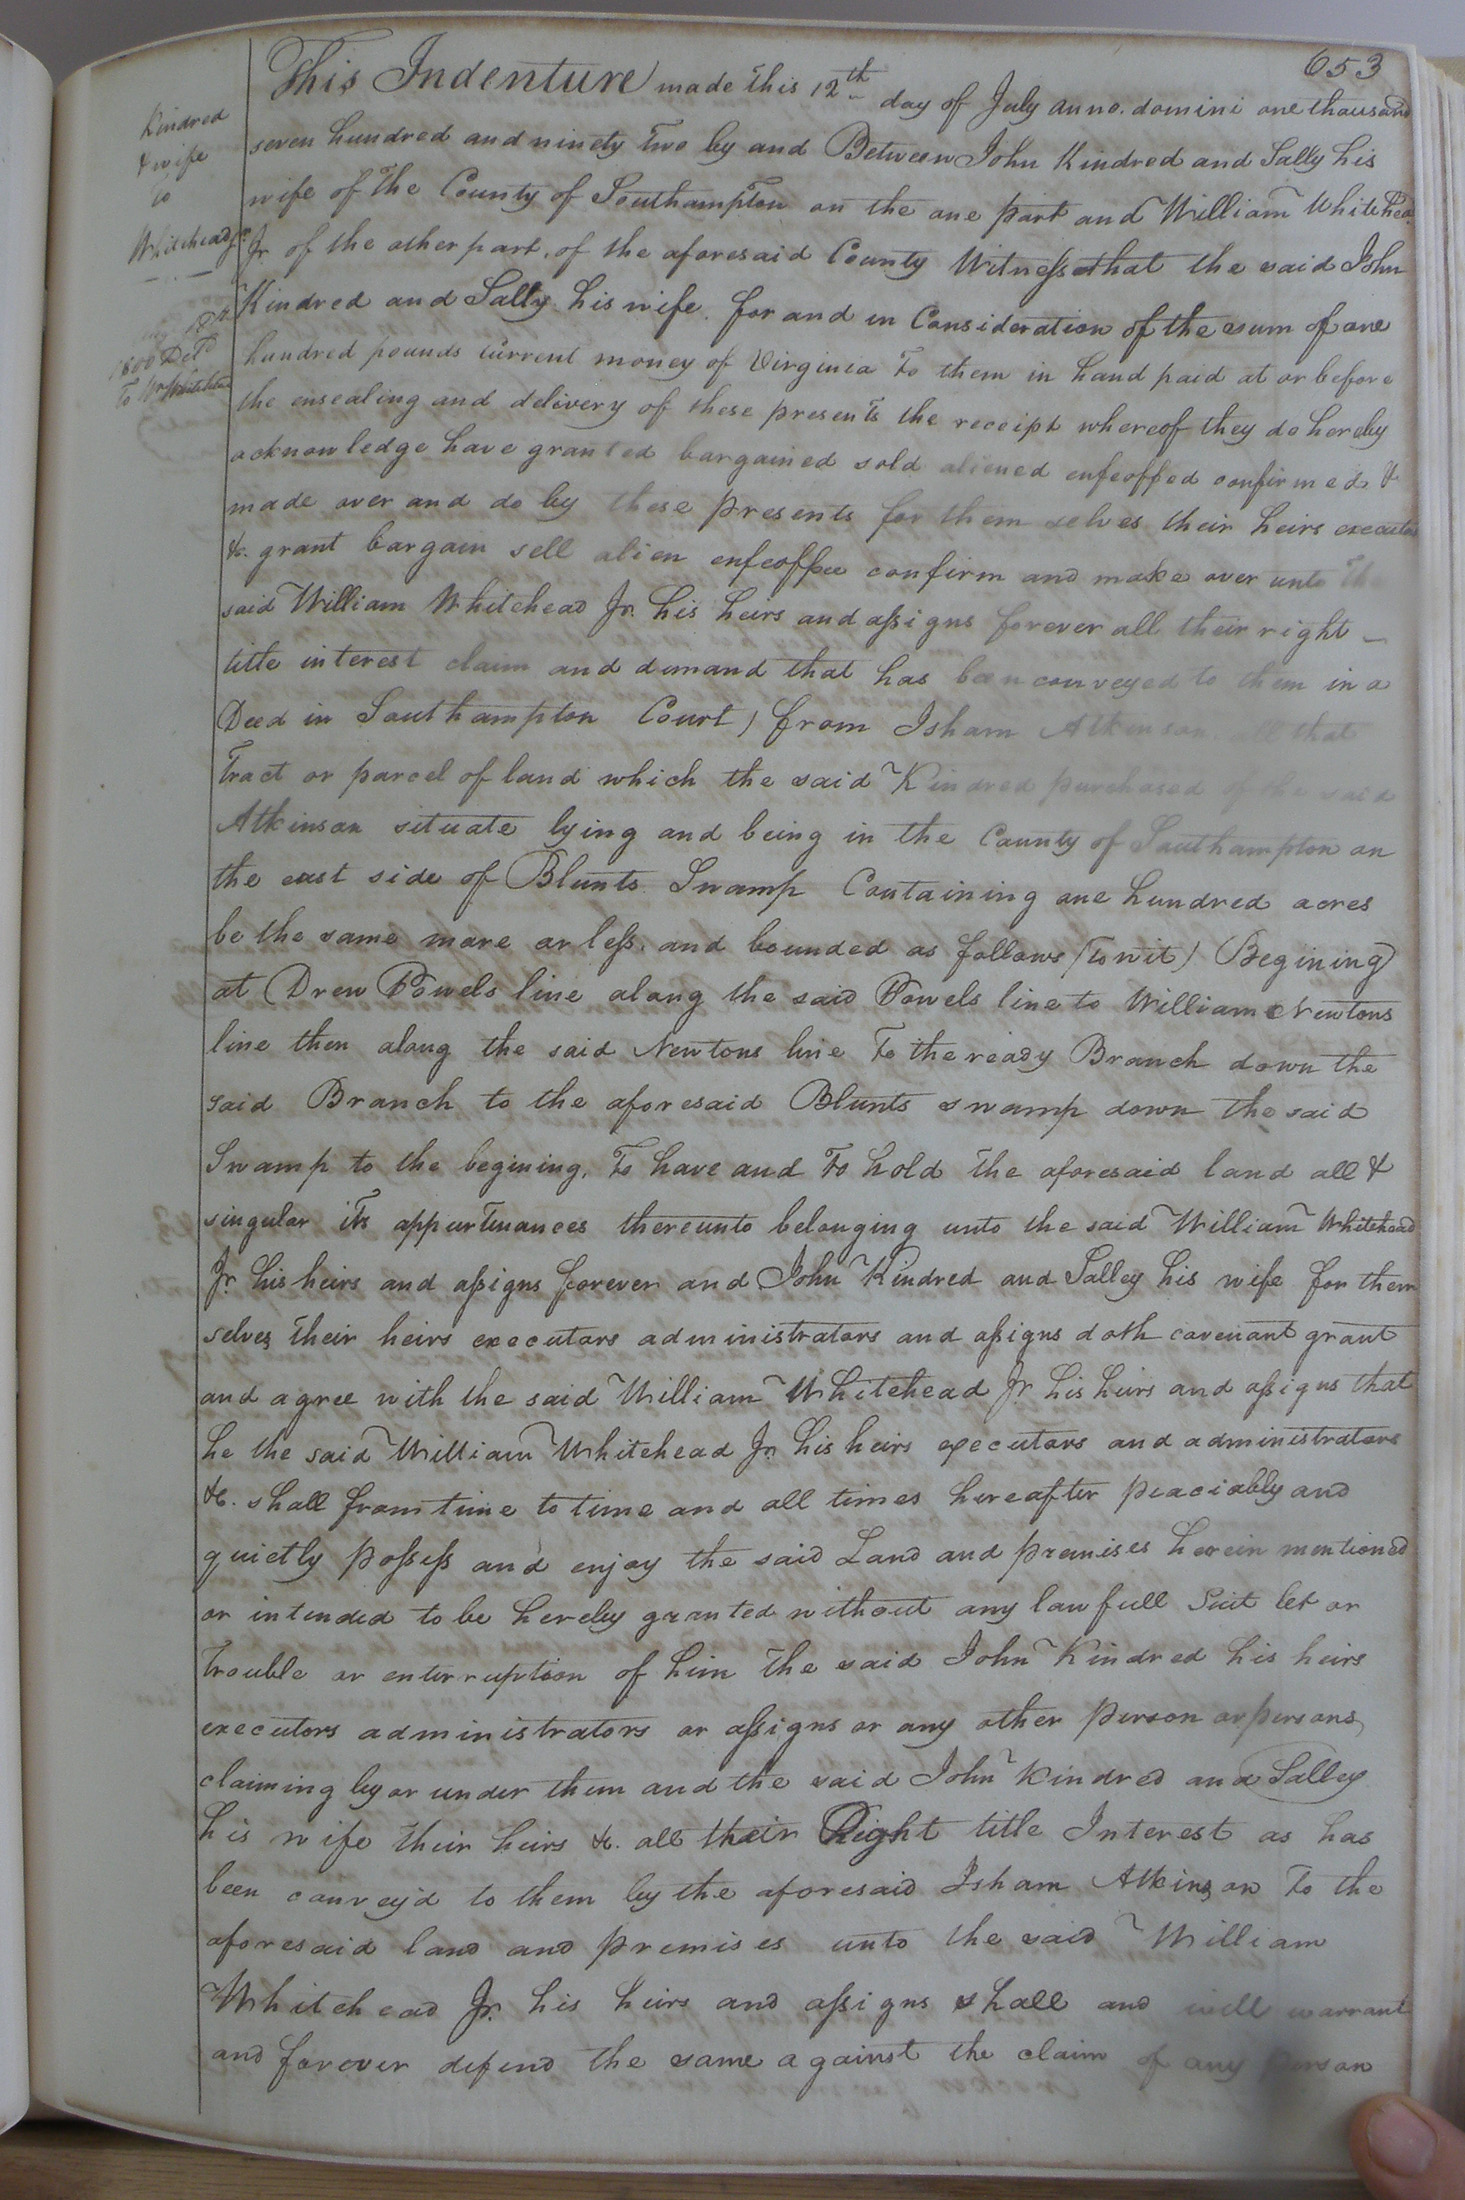 653
Kindred
& wife
to
Whitehead Jr.
1800 Deld
To Wm Whitehead
This Indenture made this 12th day of July anno. domini one thousand
seven hundred and ninety two by and Between John Kindred and Sally his
wife of the County of Southampton on the one part and William Whitehead
Jr. of the other part, of the aforesaid County Witnesseth that the said John
Kindred and Sally his wife. for and in Consideration of the sum of one
hundred pounds current money of Virginia To them in hand paid at or before
the ensealing and delivery of these presents the receipt whereof they do hereby
acknowledge have granted bargained sold aliened enfeoffed confirmed &
made over and do by these presents for them selves their heirs executors
&c. grant bargain sell alien enfeoffee confirm and make over unto the
said William Whitehead Jr. his heirs and assigns forever all their right
title interest claim and demand that has been conveyed to them in a
Deed in Southampton Court) from Isham Atkinson all that
Tract or parcel of land which the said Kindred purchased of the said
Atkinson situate lying and being in the County of Southampton on
the east side of Blunts Swamp Containing one hundred acres
be the same more or less, and bounded as follows (to wit) Begining
at Drew Powels line along the said Powels line to William Newtons
line then along the said Newtons line To the ready Branch down the
said Branch to the aforesaid Blunts swamp down the said
Swamp to the begining, To have and To hold the aforesaid land all &
singular its appurtinances thereunto belonging unto the said William Whitehead
Jr. his heirs and assigns forever and John Kindred and Salley his wife for them
selves their heirs executors administrators and assigns doth covenant grant
and agree with the said William Whitehead Jr. his heirs and assigns that
he the said William Whitehead Jr. his heirs executors and administrators
&c. shall from time to time and all times hereafter peaciably and
quietly possess and enjoy the said Land and premises herein mentioned
or intended to be hereby granted without any lawfull Suit let or
Trouble or enterruption of him the said John Kindred his heirs
executors administrators or assigns or any other person or persons
claiming by or under them and the said John Kindred and Salley
his wife their heirs &c. all their Right title Interest as has
been convey'd to them by the aforesaid Isham Atkinson To the
aforesaid land and premises unto the said William
Whitehead Jr. his heirs and assigns shall and will warrant
and forever defend the same against the claim of any person